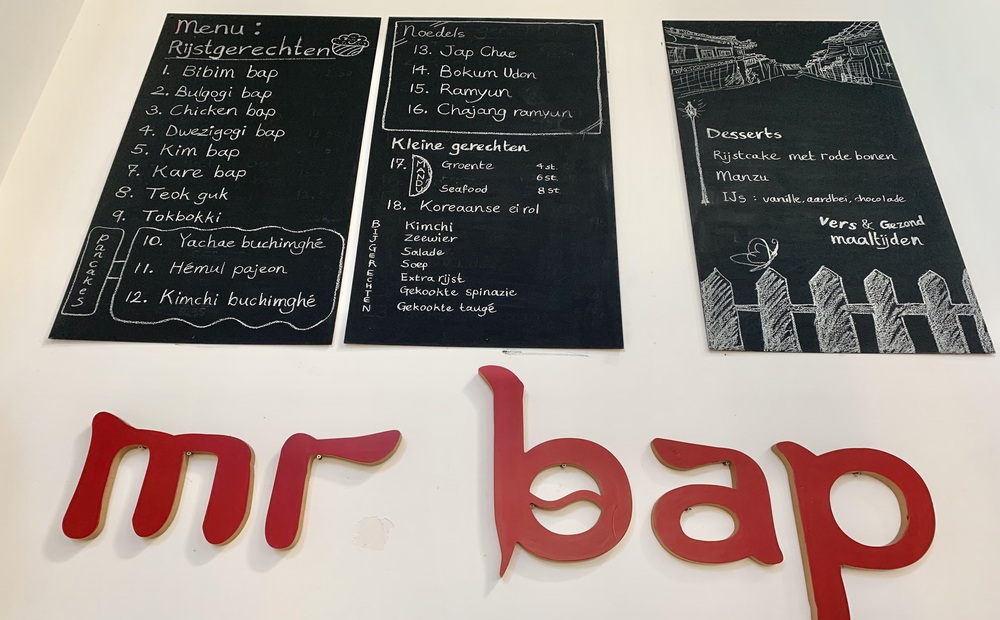 Menu :
Rijstgerechten
1. Bibim bap
2. Bulgogi bap
3. Chicken bap
4. Dwezigogi bap
5. Kim bap
7. Kare bap
8. Teok guk
9. Tokbokki
pancakes
10. Yachae buchimghé
11. Hémul pajeon
12. Kimchi buchimghé
Noedels
13. Jap Chae
14. Bokum Udon
15. Ramyun
16. Chajang ramyun
Kleine gerechten
17. MANDU
Groente 4 st.
6 st.
Seafood 8 st
18. Koreaanse ei rol
BIJGERECHTEN
Kimchi
Zeewier
Salade
Soep
Extra rijst
Gekookte spinazie
Gekookte taugé
Desserts
Rijstcake met rode bonen
Manzu
IJs : vanille, aardbei, chocolade
Vers & Gezond
maaltijden
mr bap